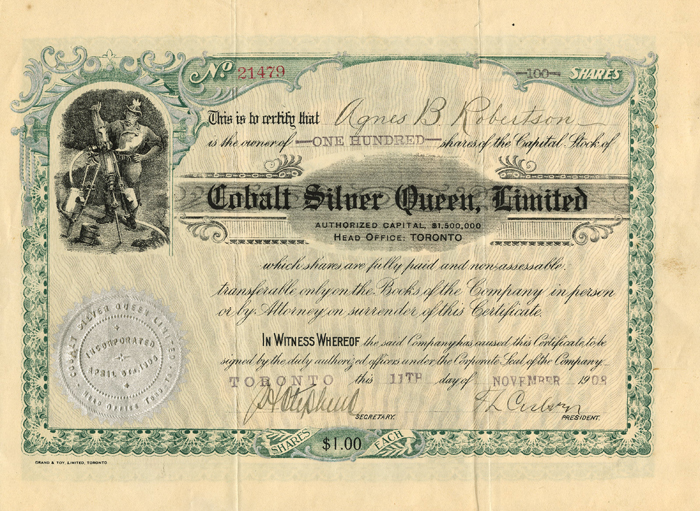 No. 21479 —100— SHARES
This is to certify that Agnes B Robertson
is the owner of —ONE HUNDRED— shares of the Capital Stock of
Cobalt Silver Queen, Limited
AUTHORIZED CAPITAL, $1,500,000
HEAD OFFICE: TORONTO
which shares are fully paid and non-assessable,
transferable only on the Books of the Company in person
or by Attorney on surrender of this Certificate.
IN WITNESS WHEREOF the said Company has caused this Certificate to be
signed by the duly authorized officers under the Corporate Seal of the Company
TORONTO this 11TH day of NOVEMBER 1908
SECRETARY. PRESIDENT.
COBALT SILVER QUEEN LIMITED
INCORPORATED
APRIL
Head Office
SHARES $1.00 EACH
GRAND & TOY, LIMITED, TORONTO